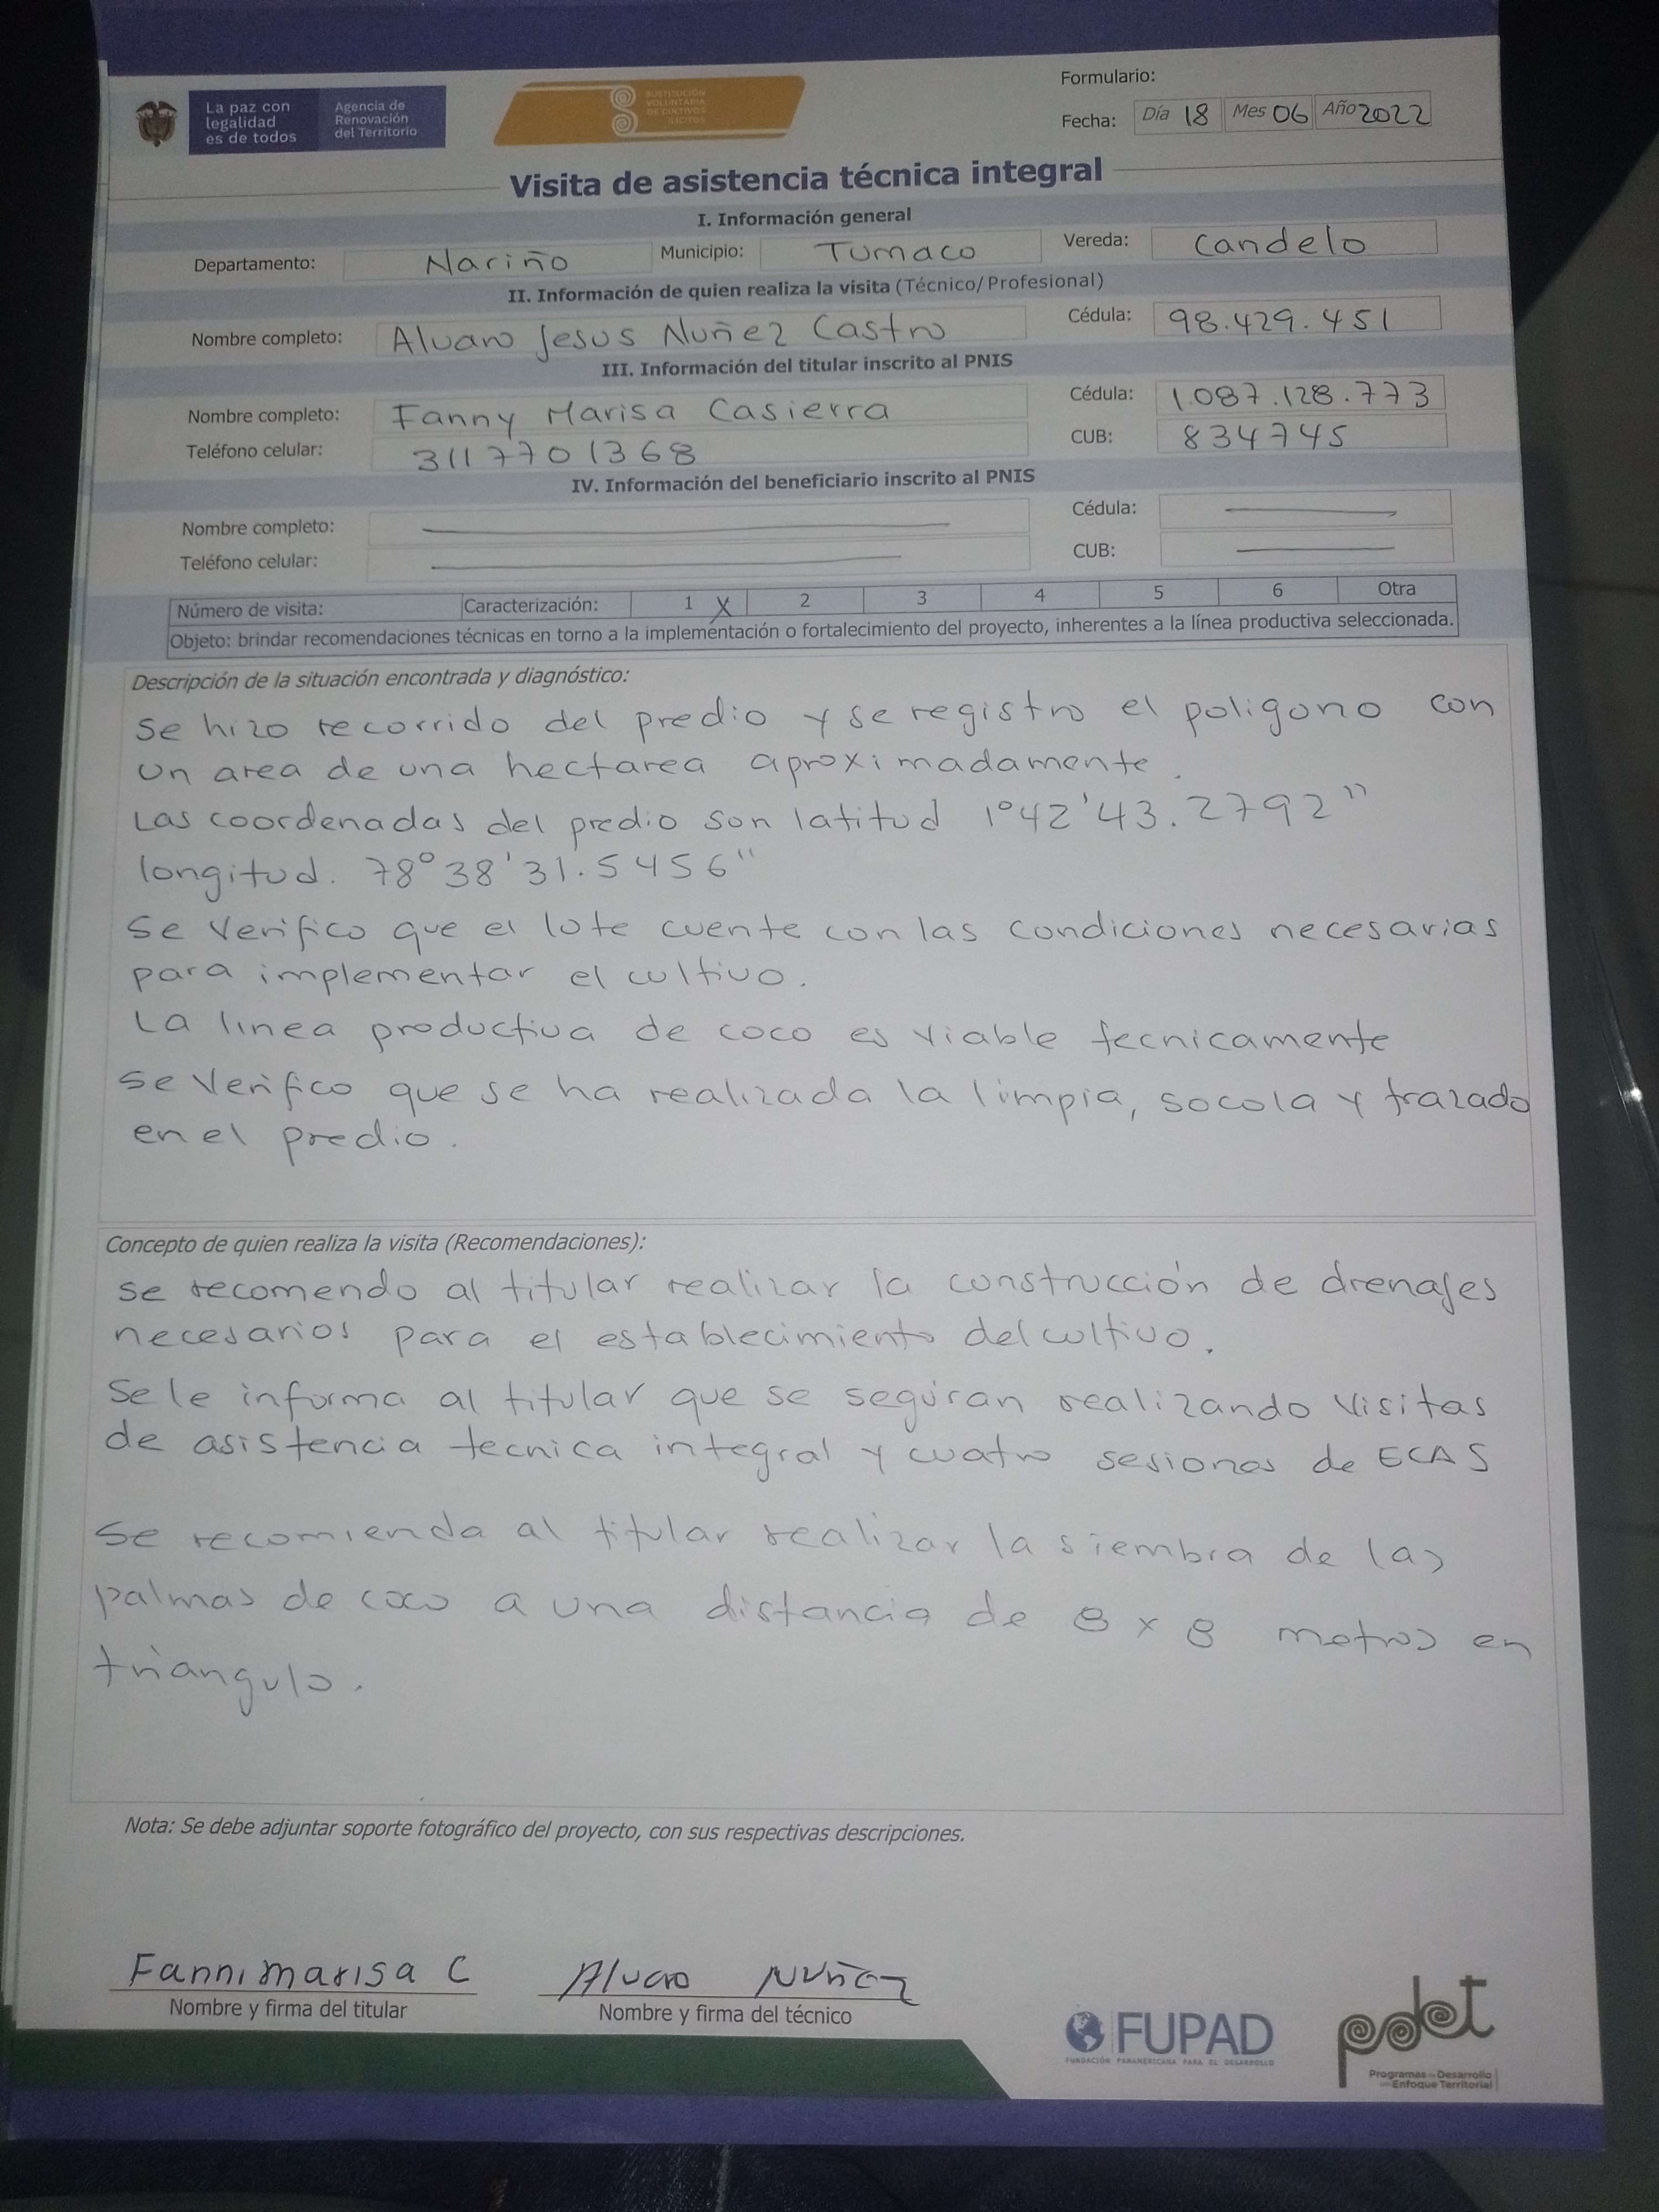 Formulario:
La paz con legalidad es de todos
Agencia de Renovación del Territorio
SUSTITUCIÓN VOLUNTARIA DE CULTIVOS ILÍCITOS
Fecha: Día 18 Mes 06 Año 2022
Visita de asistencia técnica integral
I. Información general
Departamento: Nariño Municipio: Tumaco Vereda: Candelo
II. Información de quien realiza la visita (Técnico/Profesional)
Nombre completo: Alvaro Jesus Nuñez Castro Cédula: 98.429.451
III. Información del titular inscrito al PNIS
Nombre completo: Fanny Marisa Casierra Cédula: 1.087.128.773
Teléfono celular: 3117701368 CUB: 834745
IV. Información del beneficiario inscrito al PNIS
Nombre completo: Cédula:
Teléfono celular: CUB:
Número de visita: Caracterización: 1 X 2 3 4 5 6 Otra
Objeto: brindar recomendaciones técnicas en torno a la implementación o fortalecimiento del proyecto, inherentes a la línea productiva seleccionada.
Descripción de la situación encontrada y diagnóstico:
Se hizo recorrido del predio y se registro el poligono con
un area de una hectarea aproximadamente.
Las coordenadas del predio son latitud 1°42'43.2792"
longitud. 78°38'31.5456"
Se verifico que el lote cuente con las condiciones necesarias
para implementar el cultivo.
La linea productiva de coco es viable tecnicamente
Se verifico que se ha realizada la limpia, socola y trazado
en el predio.
Concepto de quien realiza la visita (Recomendaciones):
se recomendo al titular realizar la construcción de drenajes
necesarios para el establecimiento del cultivo.
Se le informa al titular que se seguiran realizando visitas
de asistencia tecnica integral y cuatro sesiones de ECAS
Se recomienda al titular realizar la siembra de las
palmas de coco a una distancia de 8 x 8 metros en
triangulo.
Nota: Se debe adjuntar soporte fotográfico del proyecto, con sus respectivas descripciones.
Fannimarisa C Alvaro Nuñez
Nombre y firma del titular Nombre y firma del técnico
FUPAD
FUNDACIÓN PANAMERICANA PARA EL DESARROLLO
pdet
Programas de Desarrollo con Enfoque Territorial